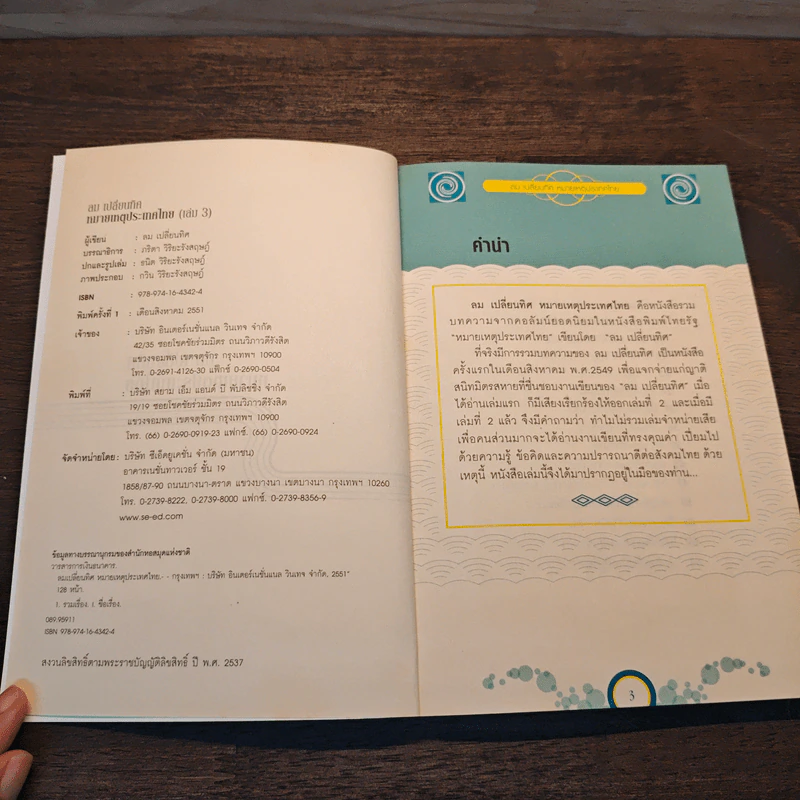 ลม เปลี่ยนทิศ
หมายเหตุประเทศไทย (เล่ม 3)
ผู้เขียน : ลม เปลี่ยนทิศ
บรรณาธิการ : ภริตา วิริยะรังสฤษฎ์
ปกและรูปเล่ม : ธนิต วิริยะรังสฤษฎ์
ภาพประกอบ : กวิน วิริยะรังสฤษฎ์
ISBN : 978-974-16-4342-4
พิมพ์ครั้งที่ 1 : เดือนสิงหาคม 2551
เจ้าของ : บริษัท อินเตอร์เนชั่นแนล วินเทจ จำกัด
42/35 ซอยโชคชัยร่วมมิตร ถนนวิภาวดีรังสิต
แขวงจอมพล เขตจตุจักร กรุงเทพฯ 10900
โทร. 0-2691-4126-30 แฟ็กซ์ 0-2690-0504
พิมพ์ที่ : บริษัท สยาม เอ็ม แอนด์ บี พับลิชชิ่ง จำกัด
19/19 ซอยโชคชัยร่วมมิตร ถนนวิภาวดีรังสิต
แขวงจอมพล เขตจตุจักร กรุงเทพฯ 10900
โทร. (66) 0-2690-0919-23 แฟกซ์. (66) 0-2690-0924
จัดจำหน่ายโดย : บริษัท ซีเอ็ดยูเคชั่น จำกัด (มหาชน)
อาคารเนชั่นทาวเวอร์ ชั้น 19
1858/87-90 ถนนบางนา-ตราด แขวงบางนา เขตบางนา กรุงเทพฯ 10260
โทร. 0-2739-8222, 0-2739-8000 แฟกซ์. 0-2739-8356-9
www.se-ed.com
ข้อมูลทางบรรณานุกรมของสำนักหอสมุดแห่งชาติ
วารสารการเงินธนาคาร.
ลมเปลี่ยนทิศ หมายเหตุประเทศไทย.- - กรุงเทพฯ : บริษัท อินเตอร์เนชั่นแนล วินเทจ จำกัด, 2551"
128 หน้า.
1. รวมเรื่อง. I. ชื่อเรื่อง.
089.95911
ISBN 978-974-16-4342-4
สงวนลิขสิทธิ์ตามพระราชบัญญัติลิขสิทธิ์ ปี พ.ศ. 2537
ลม เปลี่ยนทิศ หมายเหตุประเทศไทย
คำนำ
ลม เปลี่ยนทิศ หมายเหตุประเทศไทย คือหนังสือรวม
บทความจากคอลัมน์ยอดนิยมในหนังสือพิมพ์ไทยรัฐ
"หมายเหตุประเทศไทย" เขียนโดย "ลม เปลี่ยนทิศ"
ที่จริงมีการรวมบทความของ ลม เปลี่ยนทิศ เป็นหนังสือ
ครั้งแรกในเดือนสิงหาคม พ.ศ.2549 เพื่อแจกจ่ายแก่ญาติ
สนิทมิตรสหายที่ชื่นชอบงานเขียนของ "ลม เปลี่ยนทิศ" เมื่อ
ได้อ่านเล่มแรก ก็มีเสียงเรียกร้องให้ออกเล่มที่ 2 และเมื่อมี
เล่มที่ 2 แล้ว จึงมีคำถามว่า ทำไมไม่รวมเล่มจำหน่ายเสีย
เพื่อคนส่วนมากจะได้อ่านงานเขียนที่ทรงคุณค่า เปี่ยมไป
ด้วยความรู้ ข้อคิดและความปรารถนาดีต่อสังคมไทย ด้วย
เหตุนี้ หนังสือเล่มนี้จึงได้มาปรากฏอยู่ในมือของท่าน...
3